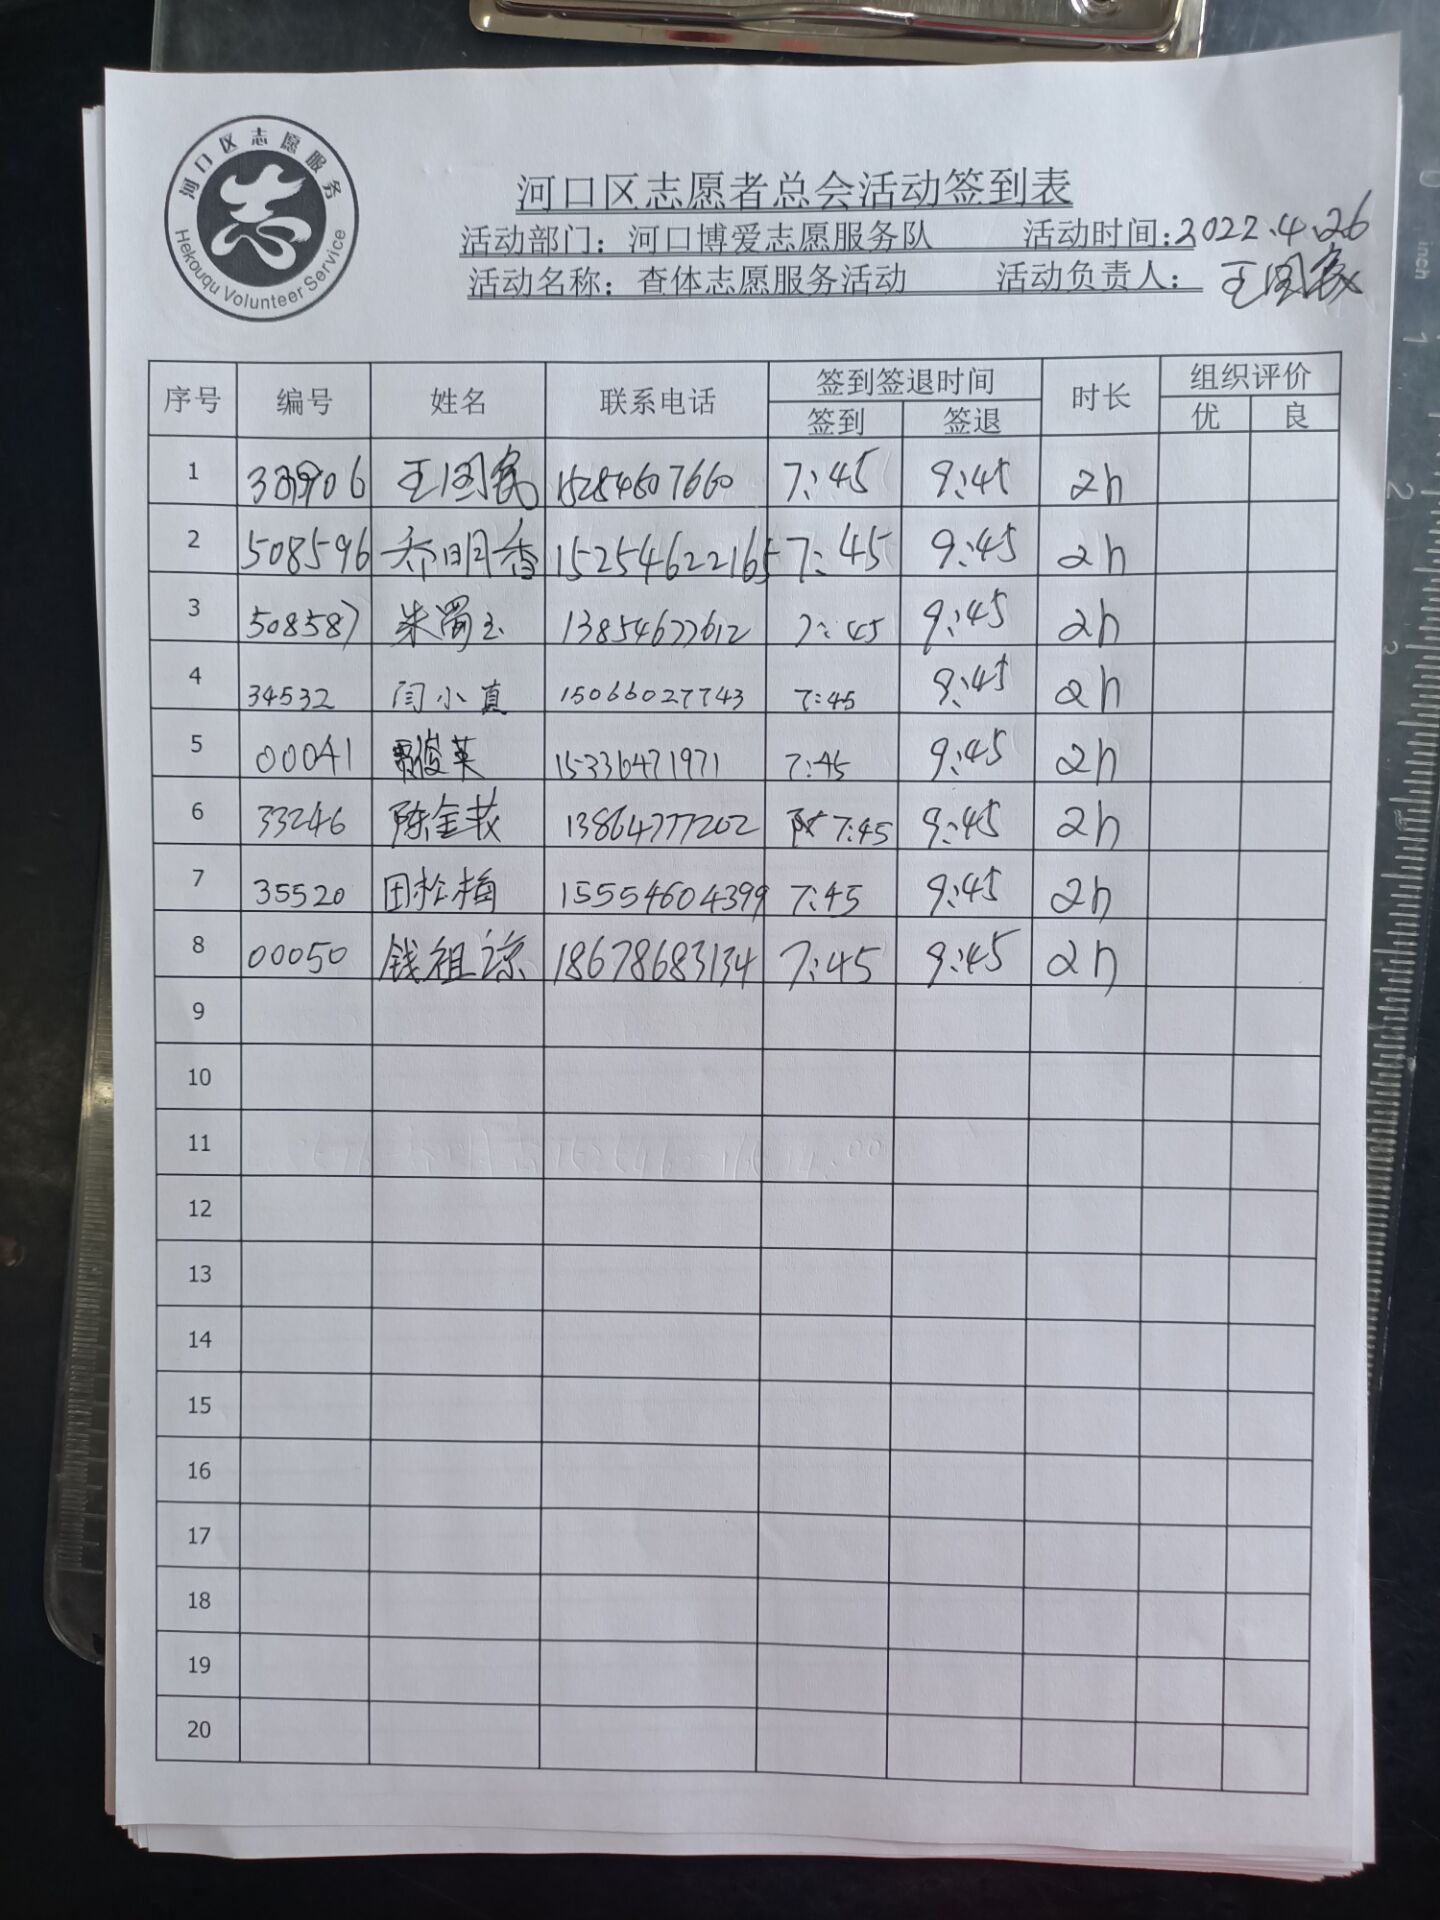 河口区志愿服务
Hekouqu Volunteer Service
河口区志愿者总会活动签到表
活动部门：河口博爱志愿服务队 活动时间：2022.4.26
活动名称：查体志愿服务活动 活动负责人：王国民
序号 编号 姓名 联系电话 签到签退时间 时长 组织评价
签到 签退 优 良
1 王国民 15284607660 7:45 9:45 2h
2 508596 乔明香 15254622165 7:45 9:45 2h
3 508587 朱蜀玉 13854677612 7:45 9:45 2h
4 34532 闫小真 15066027743 7:45 9:45 2h
5 00041 俊英 15336471971 7:45 9:45 2h
6 33246 陈金 13864777202 7:45 9:45 2h
7 35520 田松梅 15554604399 7:45 9:45 2h
8 00050 钱祖谅 18678683134 7:45 9:45 2h
9
10
11
12
13
14
15
16
17
18
19
20
inch
0
1
2
3